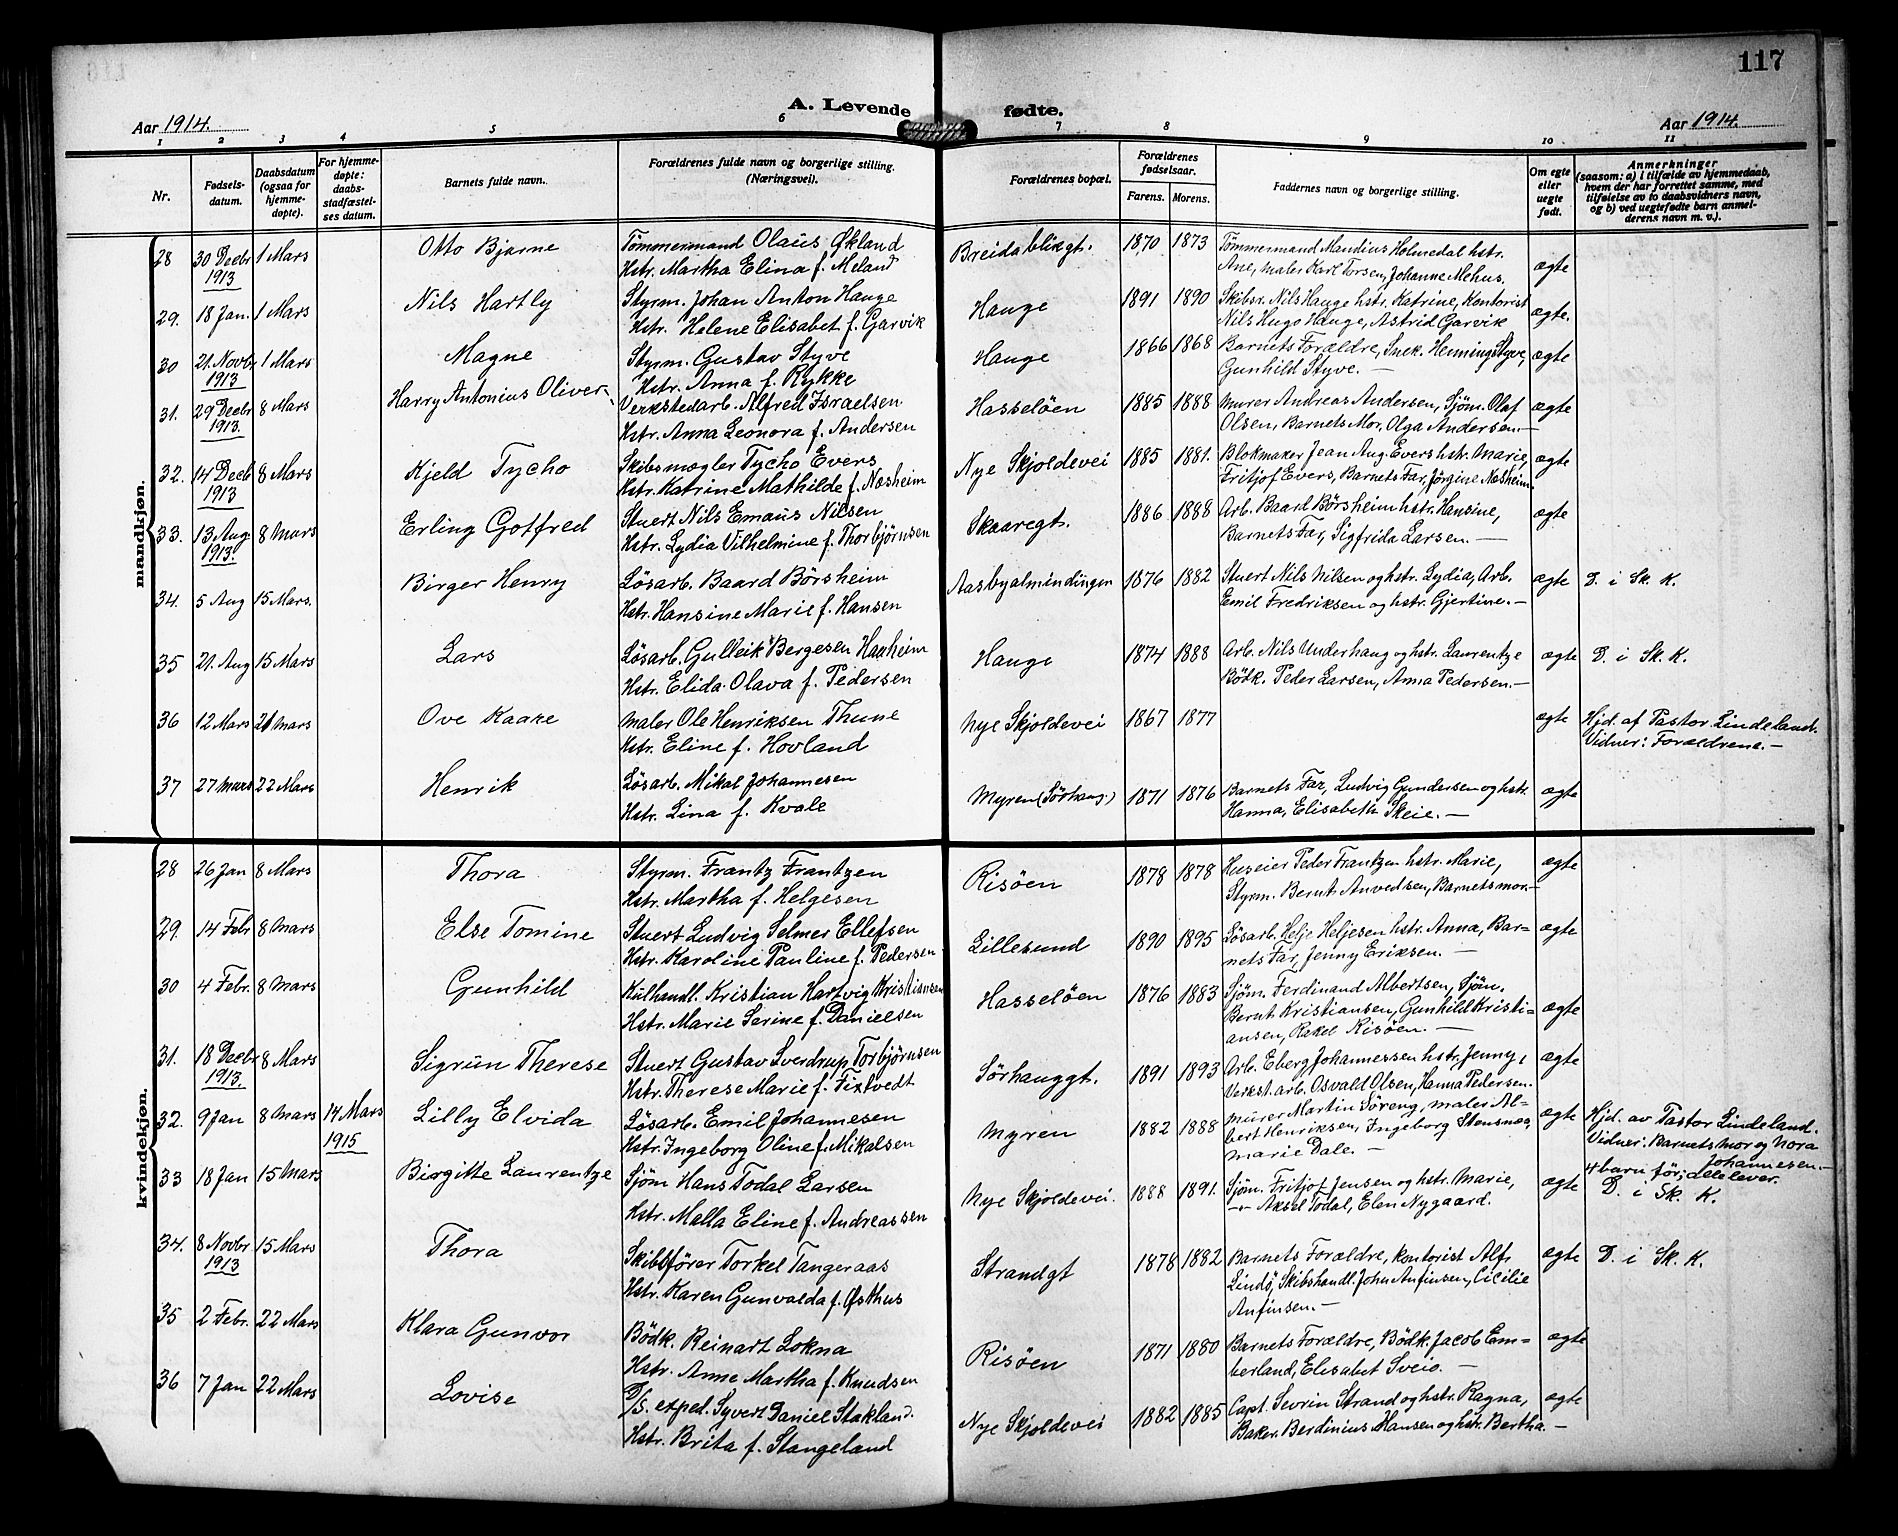 117
A. Levende fødte.
Aar 1914.
Aar 1914.
1 2 3 4 5 6 7 8 9 10 11
Nr.
Fødsels-datum.
Daabsdatum (ogsaa for hjemme-døpte).
For hjemme-døpte: daabs-stadfæstel-ses datum.
Barnets fulde navn.
Forældrenes fulde navn og borgerlige stilling. (Næringsvei).
Forældrenes bopæl.
Forældrenes fødselsaar.
Farens. Morens.
Faddernes navn og borgerlige stilling.
Om egte eller uegte født.
Anmerkninger (saasom: a) i tilfælde av hjemmedaab, hvem der har forrettet samme, med tilføielse av to daabsvidners navn, og b) ved uegtefødte barn anmel-derens navn m. v.).
mandkjøn.
28 30 Decbr 1913 1 Mars Otto Bjarne Tömmermand Olaüs Økland Breidablikgt. 1870 1873 Tömmermand Mandius Holmedal hstr.
Hstr. Martha Elina f. Meland Ane, maler Karl Torsen, Johanne Mehus. ægte
29. 18 Jan. 1 Mars Nils Hartly Styrm. Johan Anton Hauge Hauge 1891 1890 Skibsr. Nils Hauge hstr. Katrine, Kontorist
Hstr. Helene Elisabet f. Garvik Nils Hugo Hauge, Astrid Garvik ægte.
30 21. Novbr 1913 1 Mars Magne Styrm. Gustav Styve Hauge 1866 1868 Barnets Forældre, Snek. Henning Styve,
Hstr. Anna f. Rykke Gunhild Styve. — ægte
31. 29 Decbr 1913. 8 Mars Harry Antonius Oliver Verkstedarb. Alfred Israelsen Hasselöen 1885 1888 Murer Andreas Andersen, Sjöm. Olaf
Hstr. Anna Leonora f. Andersen Olsen, Barnets Mor, Olga Andersen. — ægte
32. 14 Decb 1913 8 Mars Kjeld Tycho Skibsmægler Tycho Evers Nye Skjoldevei 1885 1881. Blokmaker Jean Aug. Evers hstr. Marie,
Hstr. Katrine Mathilde f. Næsheim Fritjof Evers, Barnets Far, Jörgine Næsheim. ægte
33. 13 Aug. 1913. 8 Mars Erling Gotfred Stuert Nils Emaüs Nilsen Skaaregt. 1886 1888 Arb. Baard Börsheim hstr. Hansine,
Hstr. Lydia Vilhelmine f. Thorbjörnsen Barnets Far, Sigfrida Larsen. — ægte
34. 5 Aug 15 Mars. Birger Henry Lösarb. Baard Börsheim Aasbyalmindingen 1876 1882 Stuert Nils Nilsen og hstr. Lydia, Arb. ægte D. i Sk. K.
Hstr. Hansine Marie f. Hansen Emil Fredriksen og hstr. Gjertine. —
35 21. Aug 15 Mars Lars Lösarb. Gulleik Bergesen Hauheim Hauge 1874 1888 Arb. Nils Underhaug og hstr. Laurentze ægte D. i Sk. K.
Hstr. Elida Olava f. Pedersen Bödk. Peder Larsen, Anna Pedersen. —
36 12 Mars 21 Mars Ove Kaare Maler Ole Henriksen Thune Nye Skjoldevei 1867 1877 ægte Hjd. af Pastor Lindeland.
Hstr. Eline f. Hovland Vidner: Forældrene. —
37 27 Mars 22 Mars Henrik Lösarb. Mikal Johannesen Myren (Sörhaug.) 1871 1876 Barnets Far, Ludvig Gundersen og hstr. ægte
Hstr. Lina f. Kvale Hanna, Elisabeth Skeie. —
kvindekjøn.
28 26 Jan 8 Mars Thora Styrm. Frantz Frantzen Risöen 1878 1878 Huseier Peder Frantzen hstr. Marie, ægte
Hstr. Martha f. Helgesen Styrm. Bernt Anvedsen, Barnets mor. —
29. 14 Febr 8 Mars Else Tomine Stuert Ludvig Selmer Ellefsen Lillesund 1890 1895 Lösarb. Helje Heljesen hstr. Anna, Bar- ægte
Hstr. Karoline Pauline f. Pedersen nets Far, Jenny Eriksen. —
30 4 Febr. 8 Mars Gunhild Kulhandl. Kristian Hartvig Kristiansen Hasselöen 1876 1883 Sjöm. Ferdinand Albertsen, Sjöm.
Hstr. Marie Serine f. Danielsen Bernt Kristiansen, Gunhild Kristi- ægte
ansen, Rakel Risöen. —
31. 18 Decbr 1913. 8 Mars Sigrün Therese Stuert Gustav Sverdrup Torbjörnsen Sörhauggt. 1891 1893 Arb. Eberg Johannessen hstr. Jenny, ægte
Hstr. Therese Marie f. Fixtvedt Verkst. arb. Osvald Olsen, Hanna Pedersen.
32. 9 Jan 8 Mars 14 Mars 1915 Lilly Elvida Lösarb. Emil Johannesen Myren 1882 1888 Murer Martin Söreng, maler Al- ægte Hjd. av Pastor Lindeland.
Hstr. Ingeborg Oline f. Mikalsen bert Henriksen, Ingeborg Stensnæs, Vidner: Barnets mor og Nora
Marie Dale. — Johannesen. —
4 barn før; alle lever.
33 18 Jan 15 Mars Birgitte Laurentze Sjöm Hans Todal Larsen Nye Skjoldevei. 1888 1891. Sjöm. Fritjof Jensen og hstr. Marie, ægte D. i Sk. K.
Hstr. Malla Eline f. Andreassen —"— Aksel Todal, Elen Nygaard.
34. 8 Novbr 1913 15 Mars Thora Skibsförer Torkel Tangeraas Strandgt 1878 1882 Barnets Forældre, Kontorist Alf ægte D. i Sk. K.
Hstr. Karen Gunvalda f. Østhus Lindö, Skibshandl. John Anfinsen, Cicilie
Anfinsen. —
35 2 Febr. 22 Mars Klara Gunvor Bödk. Reinart Lokna Risöen 1871 1880 Barnets Forældre, Bödk. Jacob Em- ægte
Hstr. Anne Martha f. Knudsen berland, Elisabet Sveio. —
36 7 Jan 22 Mars Lovise D/S. exped. Syvert Daniel Stakland. Nye Skjoldevei 1882 1885 Capt. Sevrin Strand og hstr. Ragna, ægte
Hstr. Brita f. Stangeland Baker. Berdinius Hansen og hstr. Bertha. —